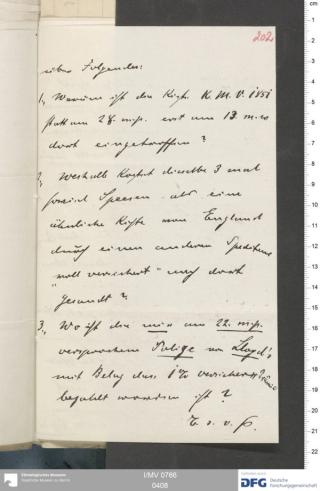 202
über Folgendes:
1., Warum ist die Kiste K. M. V. 1851
statt am 28. erst am 13.
dort eingetroffen?
2., Weshalb kostet dieselbe 3 mal
soviel Spesen als eine
ähnliche Kiste von England
durch einen anderen Spediteur
"voll versichert" nach dort
gesandt?
3., Wo ist die mir am 22.
versprochene Polize von Lloyd's
mit Beleg dass 1% Versicherungs Prämie
bezahlt worden ist?
Ethnologisches Museum
Staatliche Museen zu Berlin
I/MV 0766
0408
DFG Deutsche
Forschungsgemeinschaft
cm
1
2
3
4
5
6
7
8
9
10
11
12
13
14
15
16
17
18
19
20
21
22